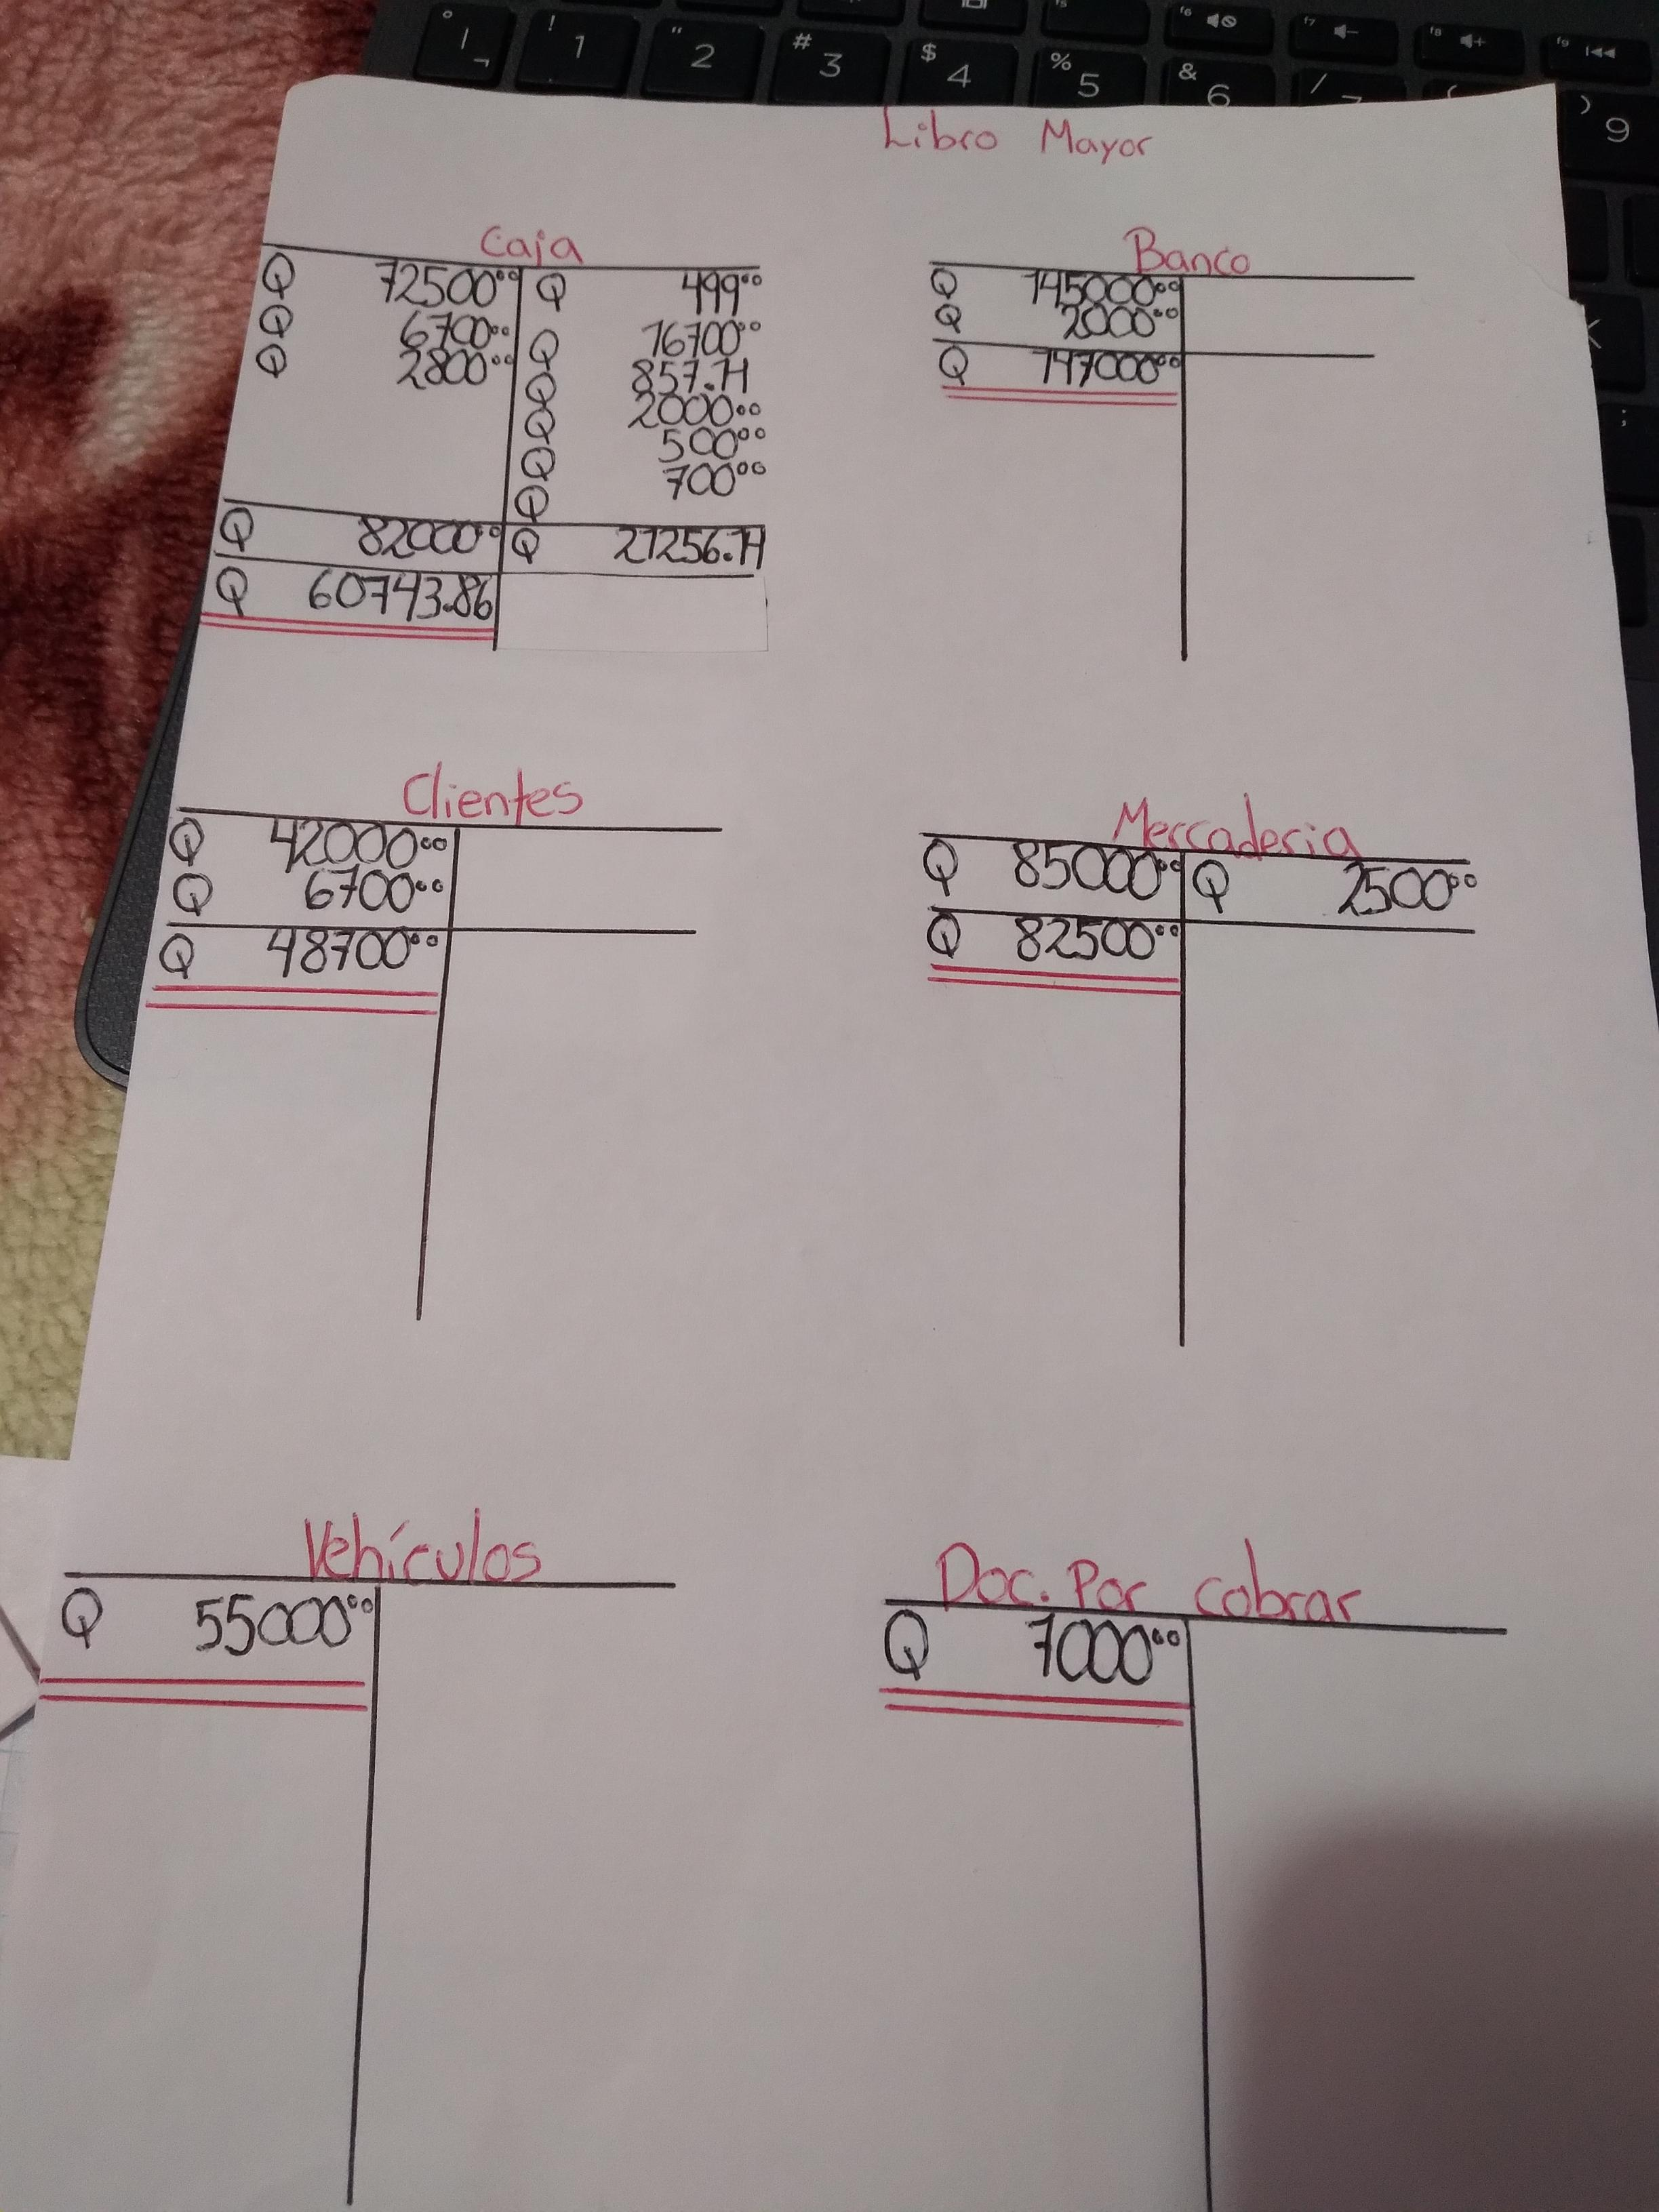 ° | ¬
! 1
" 2
# 3
$ 4
% 5
& 6
/ 7
( 
) 9
f5
f6
f7
f8
f9
K
;
Libro Mayor
Caja
Q 72500.00 Q 499.00
Q 6700.00 Q 16700.00
Q 2800.00 Q 857.14
Q 2000.00
Q 500.00
Q 700.00
Q 82000.00 Q 21256.14
Q 60743.86
Banco
Q 145000.00
Q 2000.00
Q 147000.00
Clientes
Q 42000.00
Q 6700.00
Q 48700.00
Mercaderia
Q 85000.00 Q 2500.00
Q 82500.00
Vehículos
Q 55000.00
Doc. Por cobrar
Q 7000.00